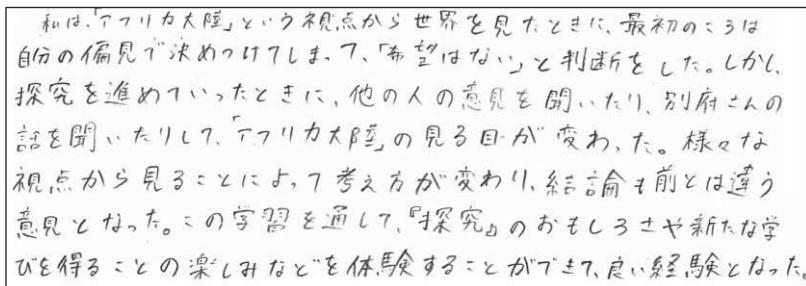 私は、「アフリカ大陸」という視点から世界を見たときに、最初のころは
自分の偏見で決めつけてしまって、「希望はない」と判断をした。しかし、
探究を進めていったときに、他の人の意見を聞いたり、別府さんの
話を聞いたりして、「アフリカ大陸」の見る目が変わった。様々な
視点から見ることによって考え方が変わり、結論も前とは違う
意見となった。この学習を通して、『探究』のおもしろさや新たな学
びを得ることの楽しみなどを体験することができて、良い経験となった。